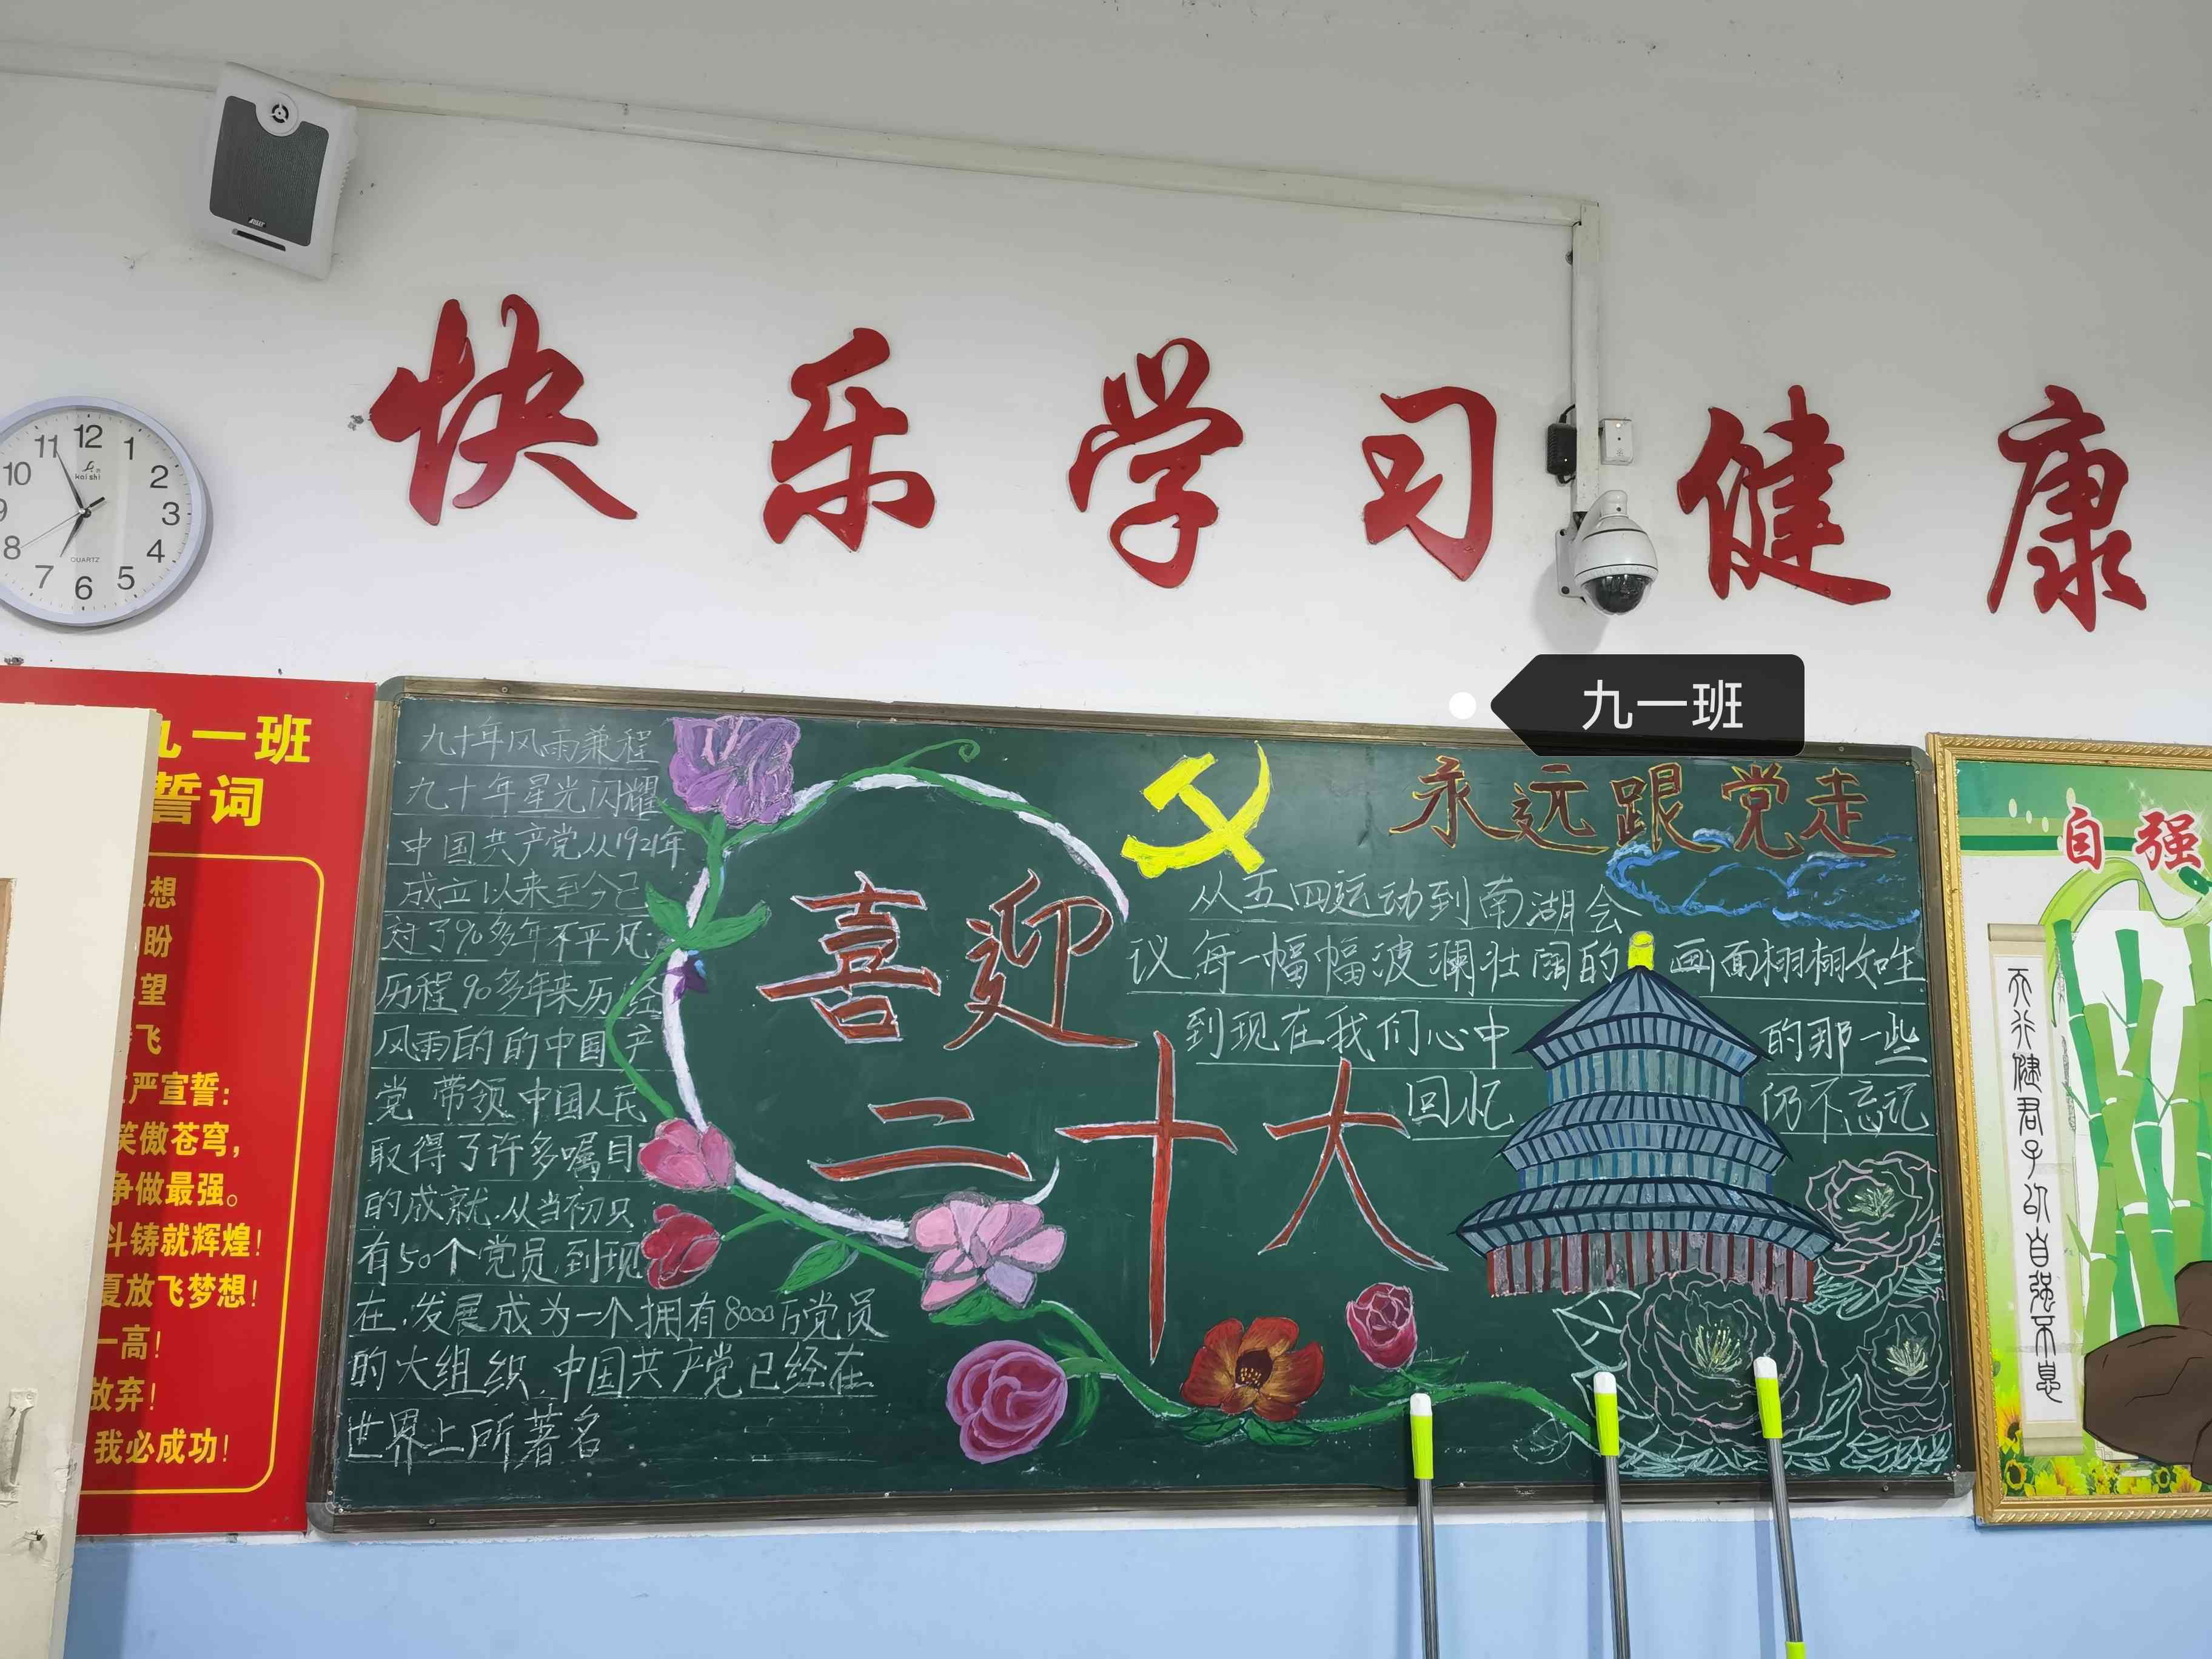 快乐学习健康
12
1
2
3
4
5
6
7
8
10
11
kaishi
QUARTZ
九一班
九一班
誓词
想
盼
望
飞
严宣誓：
笑傲苍穹，
争做最强。
斗铸就辉煌！
夏放飞梦想！
一高！
放弃！
我必成功！
九十年风雨兼程
九十年星光闪耀
中国共产党从1921年
成立以来至今已
过了90多年不平凡
历程90多年来历经
风雨的的中国产
党带领中国人民
取得了许多嘱目
的成就.从当初只
有50个党员到现
在.发展成为一个拥有8000万党员
的大组织.中国共产党已经在
世界上所著名
喜迎
二十大
永远跟党走
从五四运动到南湖会
议每一幅幅波澜壮阔的画面栩栩如生
到现在我们心中的那一些
回忆仍不忘记
自强
天行健君子以自强不息